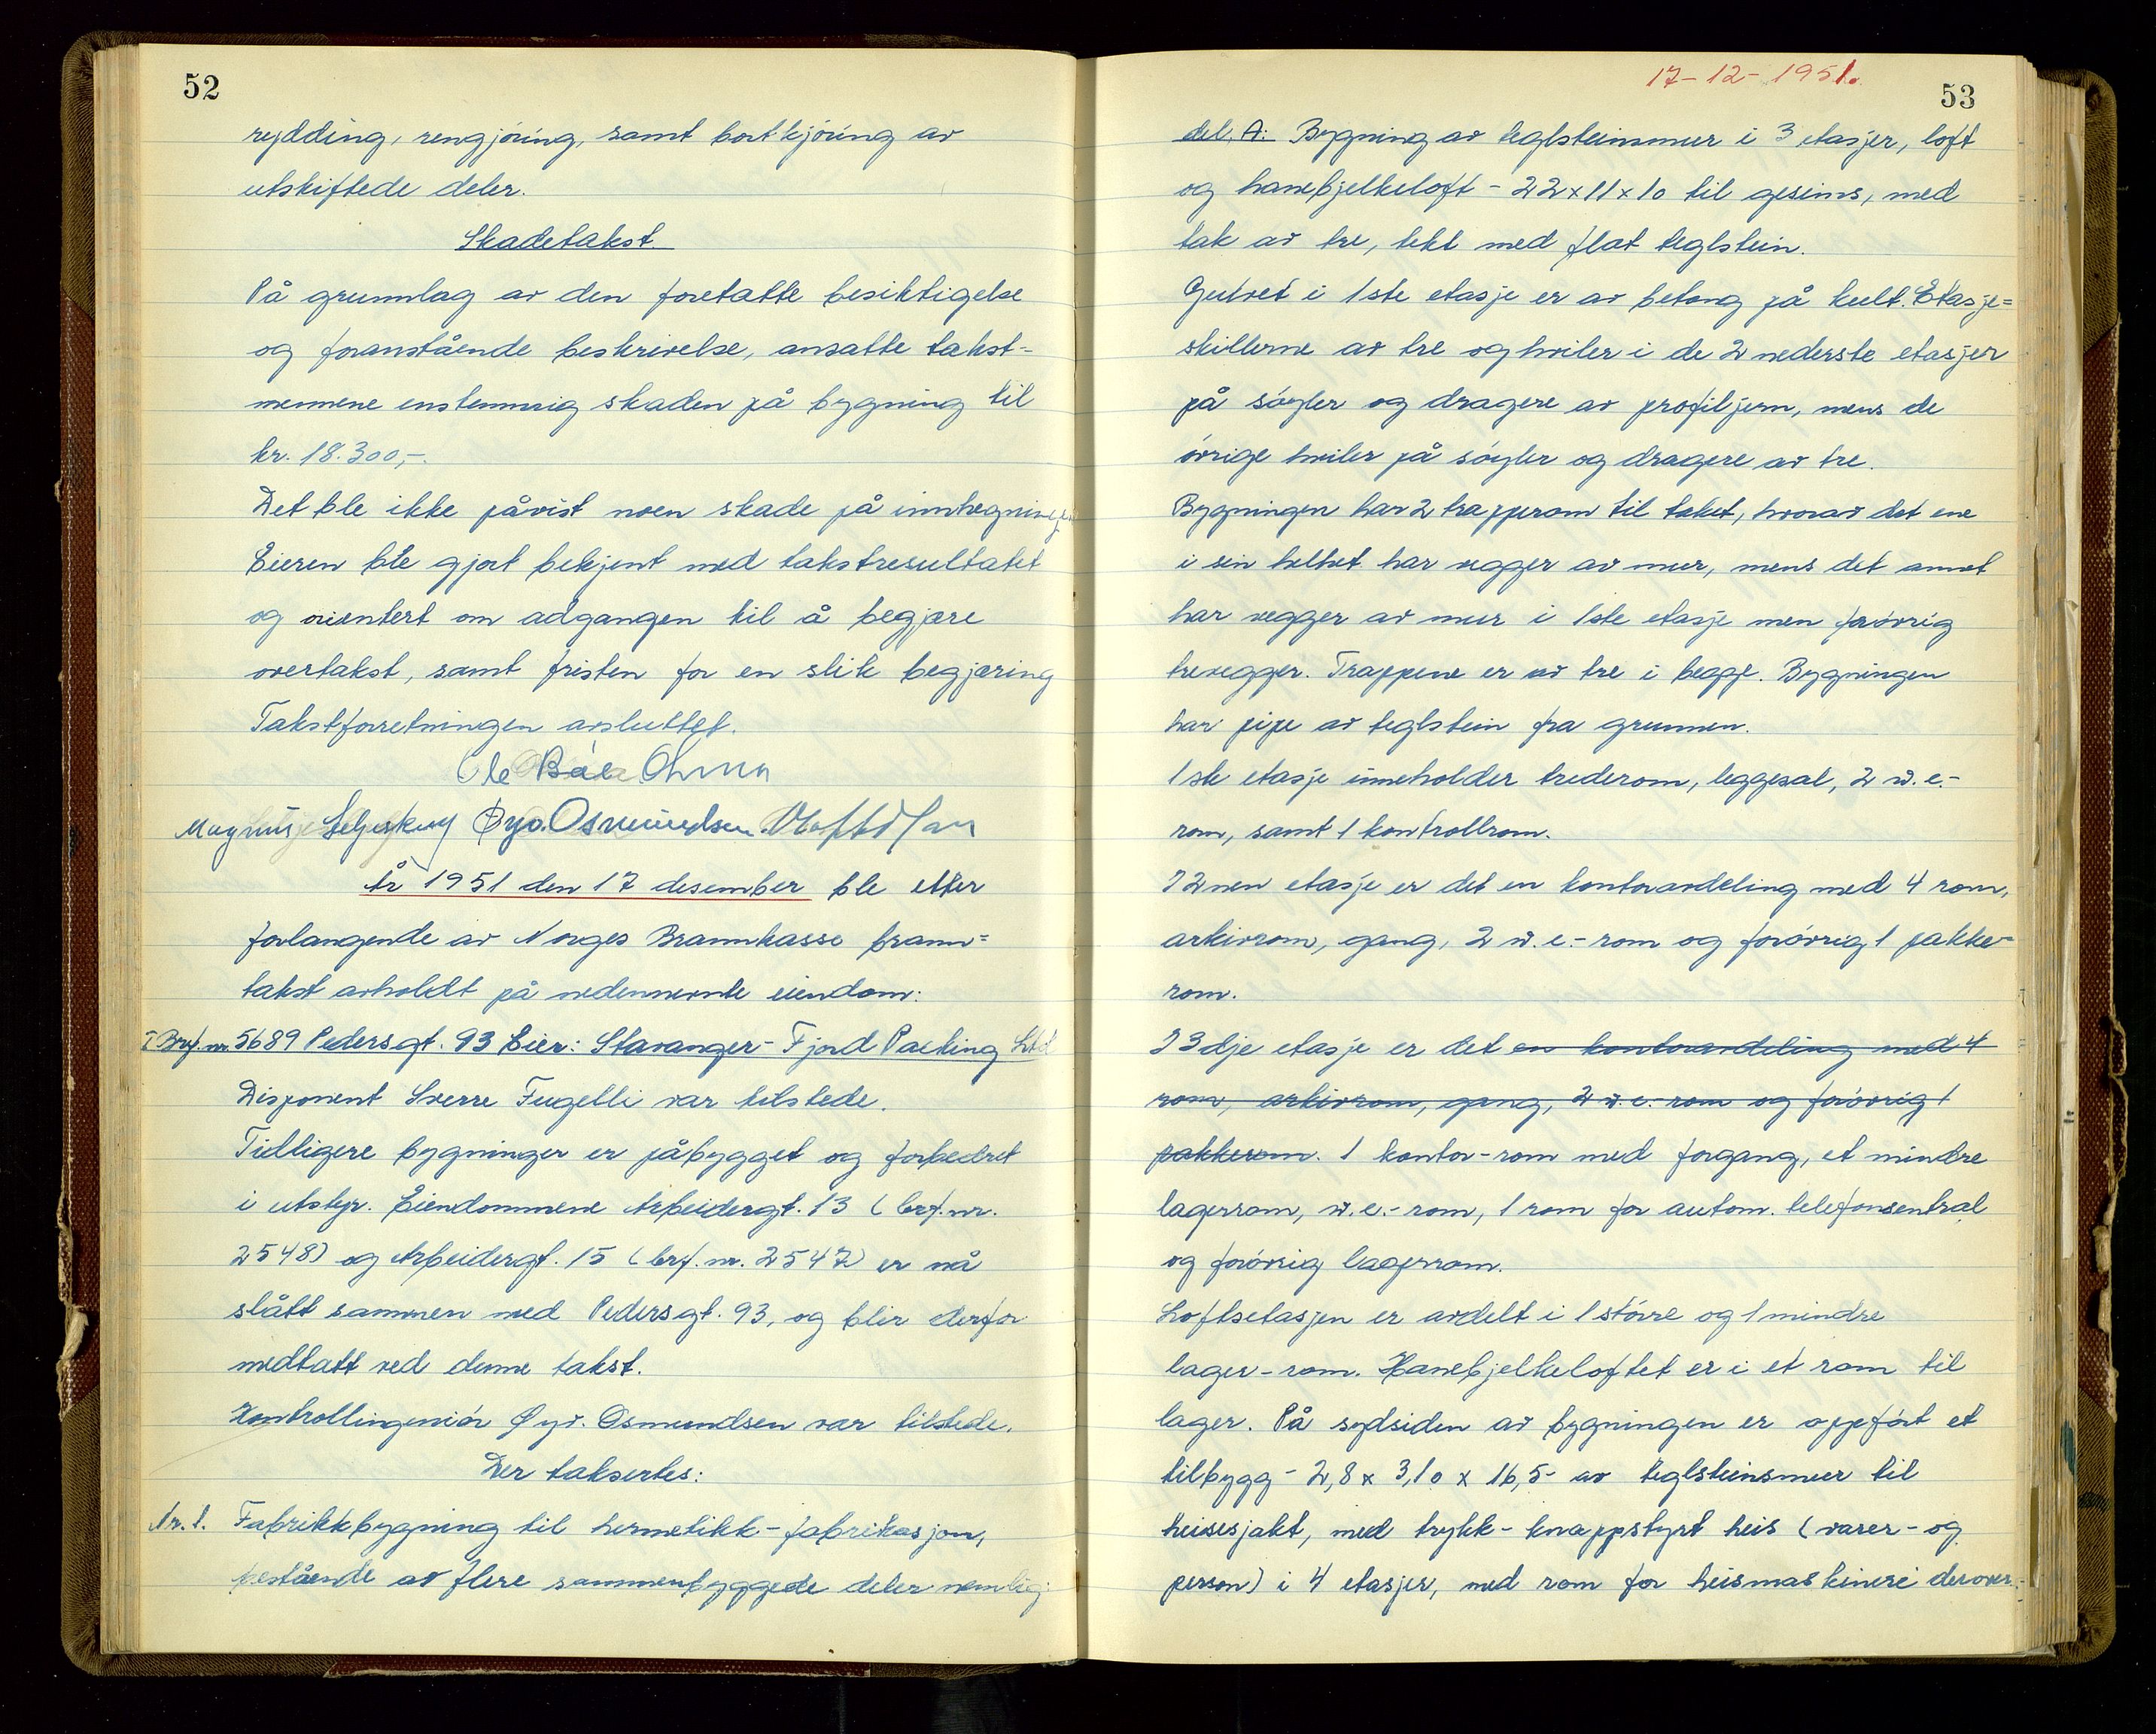 52
rydding, rengjöring, samt bortkjöring av
utskiftede deler.
Skadetakst
På grunnlag av den foretatte besiktigelse
og foranstående beskrivelse, ansatte takst-
mennene enstemmig skaden på bygning til
kr. 18.300,-.
Det ble ikke påvist noen skade på innhegningen
Eieren ble gjort bekjent med takstresultatet
og orientert om adgangen til å begjære
overtakst, samt fristen for en slik begjæring
Takstforretningen avsluttet.
Ole
Magnus Øyv. Osmundsen
År 1951 den 17 desember ble etter
forlangende av Norges Brannkasse brann=
takst avholdt på nedennevnte eiendom:
I Brf. nr. 5689 Pedersgt. 93 Eier: Stavanger-Fjord Packing Ltd
Disponent Sverre Fugelli var tilstede.
Tidligere bygninger er påbygget og forbedret
i utstyr. Eiendommene Arbeidergt. 13 (brf. nr.
2548) og Arbeidergt. 15 (brf. nr. 2547) er nå
slått sammen med Pedersgt. 93, og blir derfor
medtatt ved denne takst.
Kontrollingeniör Øyv. Osmundsen var tilstede.
Der taksertes:
Nr. 1. Fabrikkbygning til hermetikk-fabrikasjon,
bestående av flere sammenbyggede deler nemlig:
17-12-1951.
53
del. A: Bygning av teglsteinsmur i 3 etasjer, loft
og hanebjelkeloft - 22x11x10 til gesims, med
tak av tre, tekt med flat teglstein.
Gulvet i 1ste etasje er av betong på kult. Etasje=
skillerne av tre og hviler i de 2 nederste etasjer
på söyler og dragere av profiljern, mens de
övrige hviler på söyler og dragere av tre.
Bygningen har 2 trapperom til taket, hvorav det ene
i sin helhet har vegger av mur, mens det annet
har vegger av mur i 1ste etasje men forövrig
trevegger. Trappene er av tre i begge. Bygningen
har pipe av teglstein fra grunnen.
1ste etasje inneholder trederom, leggesal, 2 w.c.-
rom, samt 1 kontrollrom.
I 2nen etasje er det en kontoravdeling med 4 rom,
arkivrom, gang, 2 w.c.-rom og forövrig 1 pakke-
rom.
I 3dje etasje er det en kontoravdeling med 4
rom, arkivrom, gang, 2 w.c.-rom og forövrig 1
pakkerom. 1 kontor-rom med forgang, et mindre
lagerrom, w.c.-rom, 1 rom for autom. telefonsentral
og forövrig lagerrom.
Loftsetasjen er avdelt i 1 större og 1 mindre
lager-rom. Hanebjelkeloftet er i et rom til
lager. På sydsiden av bygningen er oppfört et
tilbygg - 2,8 x 3,10 x 16,5- av teglsteinsmur til
heisesjakt, med trykk-knappstyrt heis (varer- og
person) i 4 etasjer, med rom for heismaskineri derover.